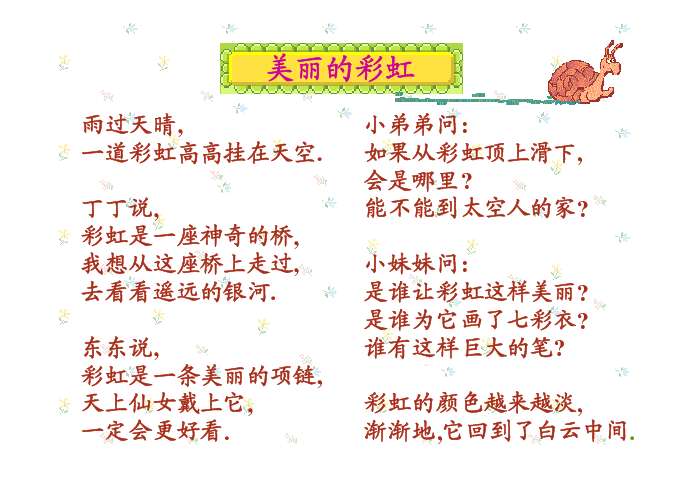 美丽的彩虹
雨过天晴,
一道彩虹高高挂在天空.
丁丁说,
彩虹是一座神奇的桥,
我想从这座桥上走过,
去看看遥远的银河.
东东说,
彩虹是一条美丽的项链,
天上仙女戴上它,
一定会更好看.
小弟弟问:
如果从彩虹顶上滑下,
会是哪里?
能不能到太空人的家?
小妹妹问:
是谁让彩虹这样美丽?
是谁为它画了七彩衣?
谁有这样巨大的笔?
彩虹的颜色越来越淡,
渐渐地,它回到了白云中间.